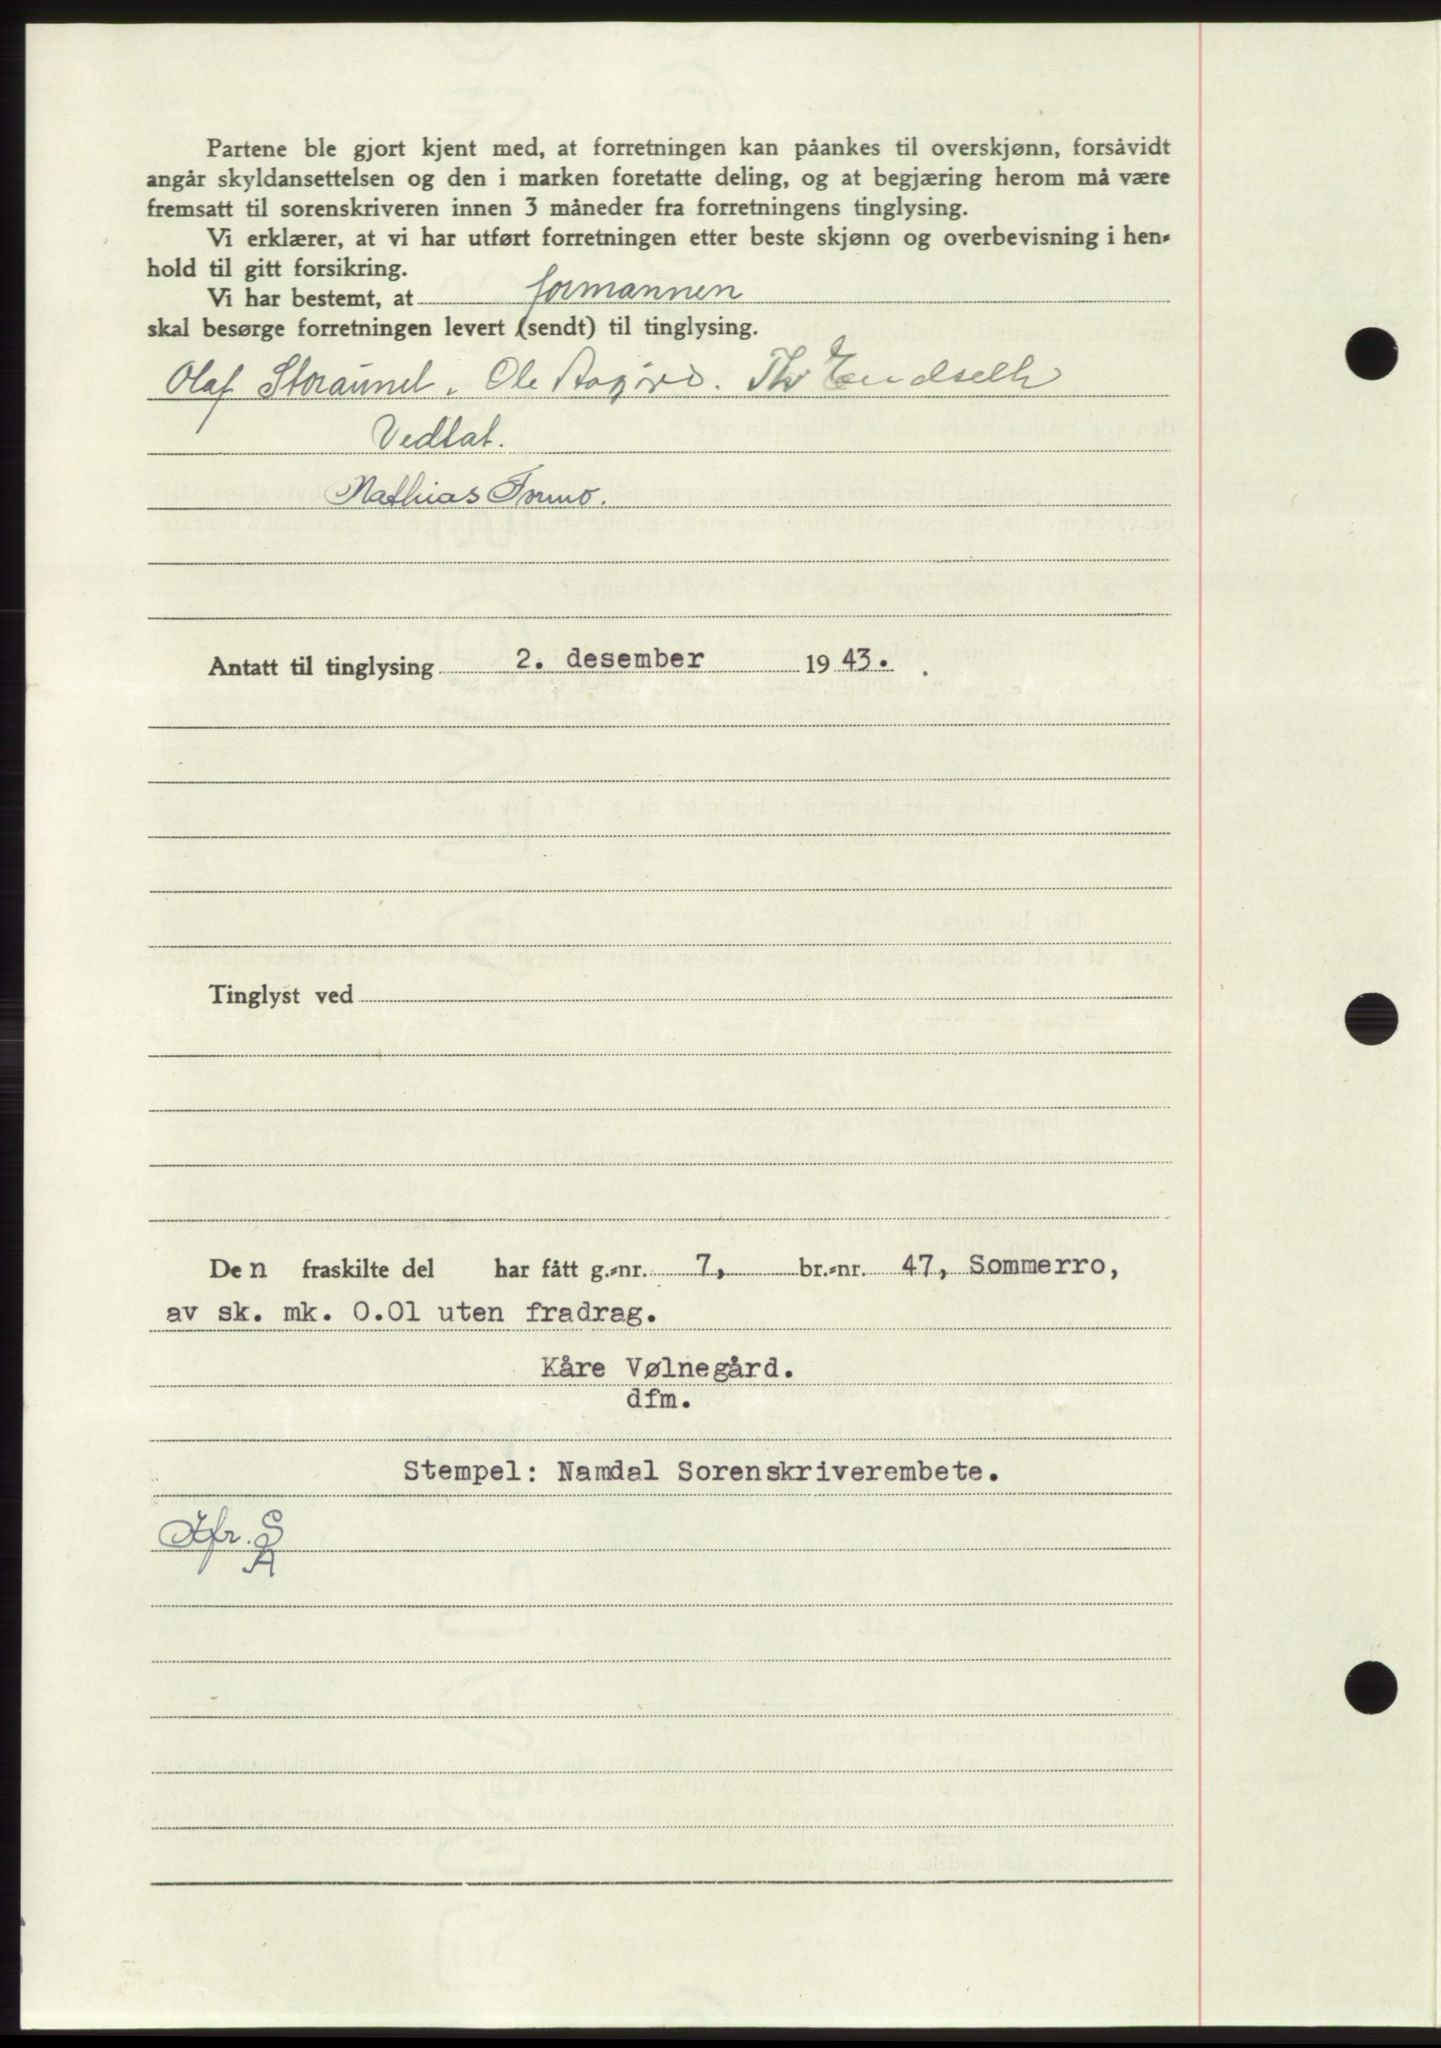 Partene ble gjort kjent med, at forretningen kan påankes til overskjønn, forsåvidt
angår skyldansettelsen og den i marken foretatte deling, og at begjæring herom må være
fremsatt til sorenskriveren innen 3 måneder fra forretningens tinglysing.
Vi erklærer, at vi har utført forretningen etter beste skjønn og overbevisning i hen-
hold til gitt forsikring.
Vi har bestemt, at formannen
skal besørge forretningen levert (sendt) til tinglysing.
Olaf Ole
Vedtat.
Mathias Formo.
Antatt til tinglysing 2. desember 1943.
Tinglyst ved
Den fraskilte del har fått g.-nr. 7, br.-nr. 47, Sommerro,
av sk. mk. 0.01 uten fradrag.
Kåre Vølnegård.
dfm.
Stempel: Namdal Sorenskriverembete.
Jfr. S
A